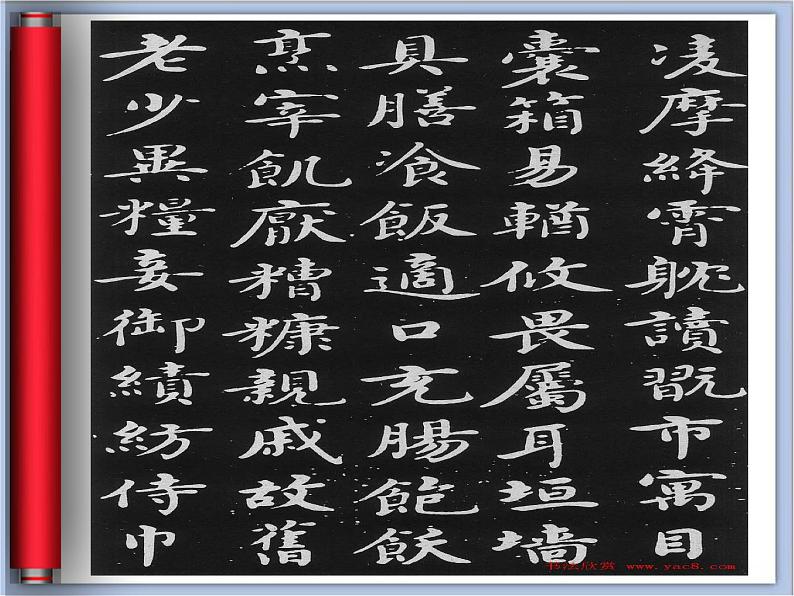 凌摩絳霄躭讀翫市寓目
囊箱易輶攸畏屬耳垣墙
具膳飡飯適口充腸飽飫
烹宰飢厭糟糠親戚故舊
老少異糧妾御績紡侍巾
书法欣赏 www.yac8.com